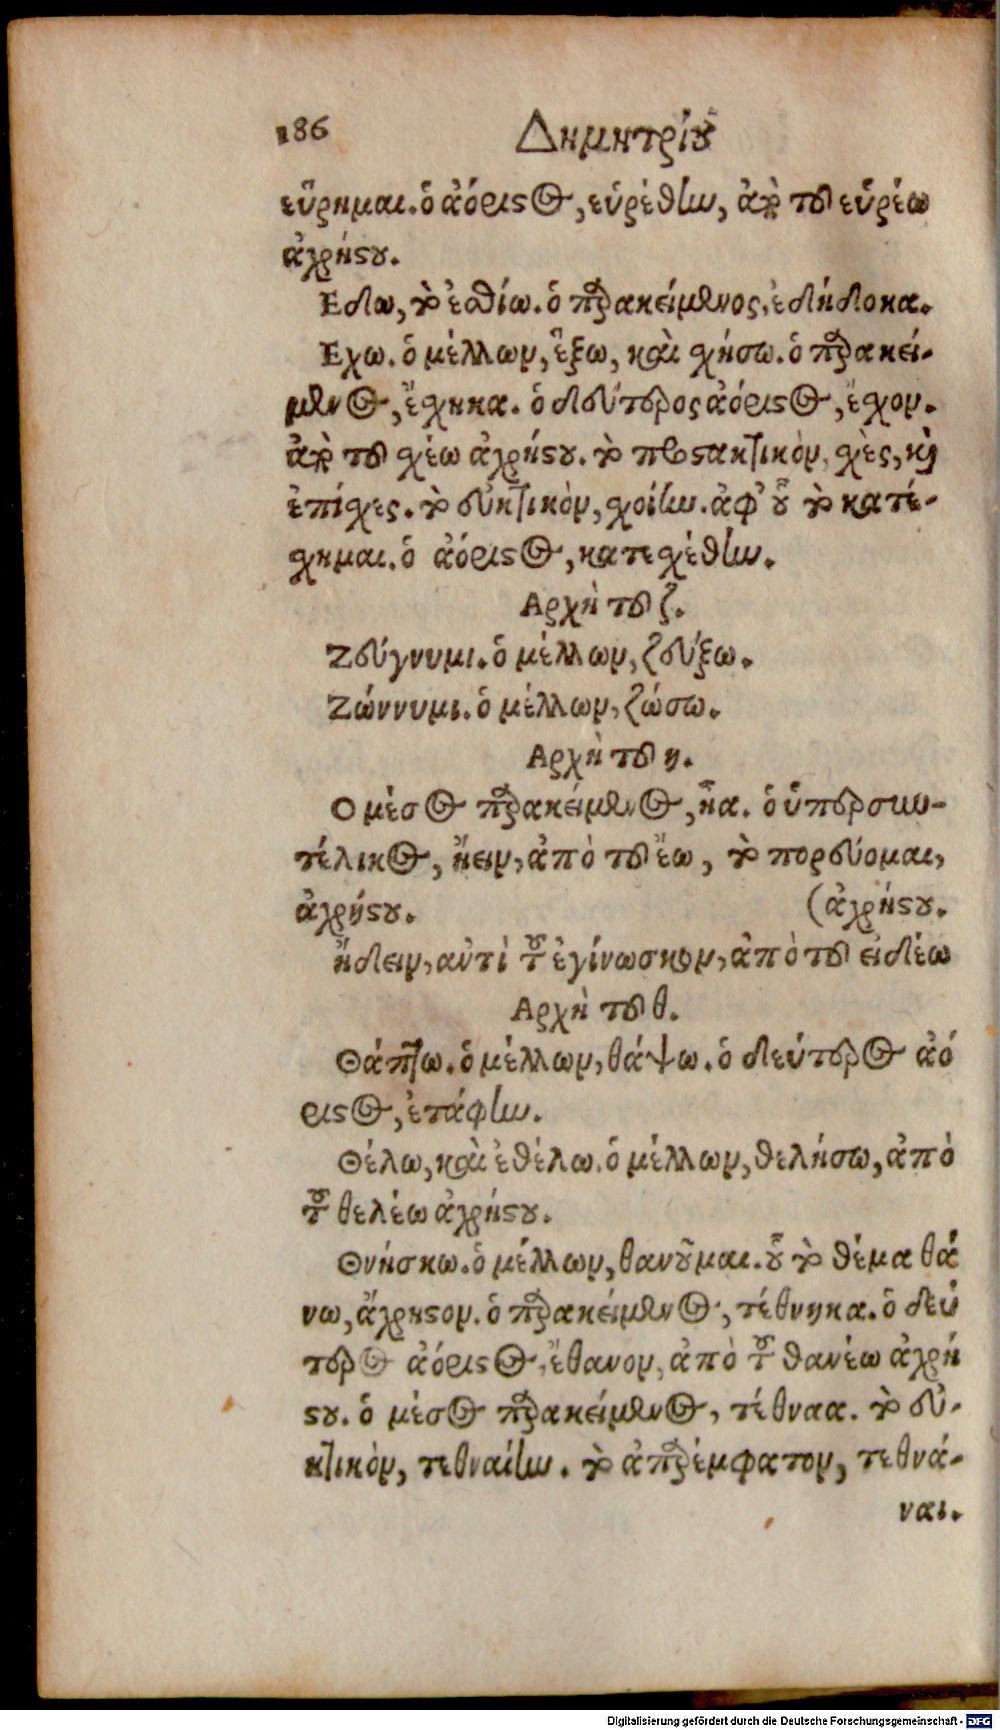 186 Δημητρίου
εὕρημαι. ὁ ἀόριστος, εὑρέθην, ἀπὸ τοῦ εὑρέω
ἀχρήστου.
Εδω, τὸ ἐσθίω. ὁ παρακείμενος, ἐδήδοκα.
Εχω. ὁ μέλλων, ἕξω, καὶ σχήσω. ὁ παρακεί-
μενος, ἔσχηκα. ὁ δεύτερος ἀόριστος, ἔσχον.
ἀπὸ τοῦ σχέω ἀχρήστου. τὸ προστακτικὸν, σχὲς, καὶ
ἐπίσχες. τὸ εὐκτικὸν, σχοίην. ἀφ' οὗ τὸ κατέ-
σχημαι. ὁ ἀόριστος, κατεσχέθην.
Αρχὴ τοῦ ζ.
Ζεύγνυμι. ὁ μέλλων, ζεύξω.
Ζώννυμι. ὁ μέλλων, ζώσω.
Αρχὴ τοῦ η.
Ο μέσος παρακείμενος, ἧα. ὁ ὑπερσυν-
τέλικος, ἤειν, ἀπὸ τοῦ ἔω, τὸ πορεύομαι,
ἀχρήστου. (ἀχρήστου.
ᾔδειν, αὐτὶ τοῦ ἐγίνωσκον, ἀπὸ τοῦ εἰδέω
Αρχὴ τοῦ θ.
Θάπτω. ὁ μέλλων, θάψω. ὁ δεύτερος ἀό
ριστος, ἐτάφην.
Θέλω, καὶ ἐθέλω. ὁ μέλλων, θελήσω, ἀπὸ
τοῦ θελέω ἀχρήστου.
Θνήσκω. ὁ μέλλων, θανοῦμαι. οὗ τὸ θέμα θά
νω, ἄχρηστον. ὁ παρακείμενος, τέθνηκα. ὁ δεύ
τερος ἀόριστος, ἔθανον, ἀπὸ τοῦ θανέω ἀχρή
στου. ὁ μέσος παρακείμενος, τέθναα. τὸ εὐ-
κτικὸν, τεθναίην. τὸ ἀπαρέμφατον, τεθνά-
ναι.
Digitalisierung gefördert durch die Deutsche Forschungsgemeinschaft - DFG